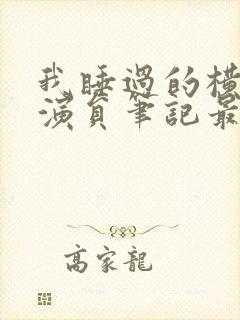 我睡過的橫
演員筆記最
高家龍